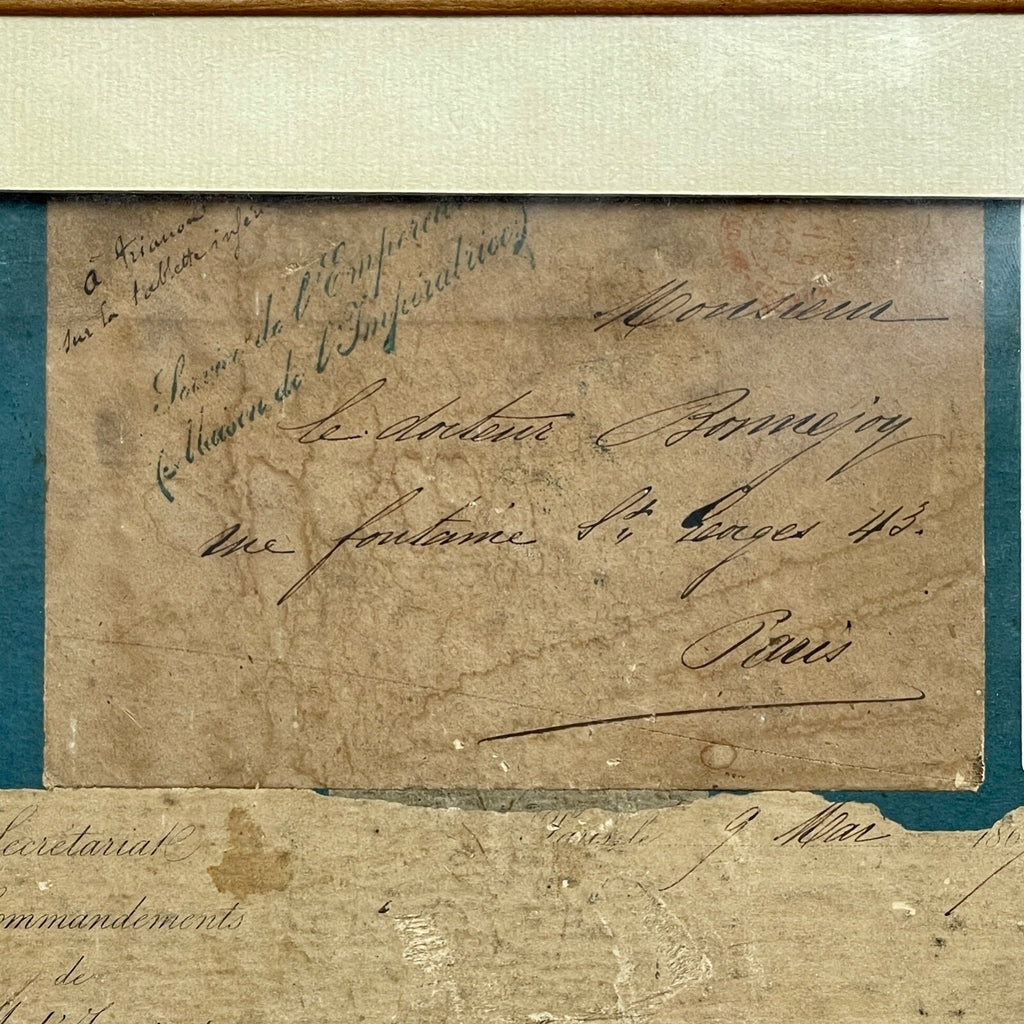 à Trianon
sur la tablette
Service de l'Empereur
(Maison de l'Impératrice)
Monsieur
le docteur Bonnejoy
rue fontaine St. Georges 43.
Paris
Secrétariat
Paris, le 9 Mai 186
ommandements
de